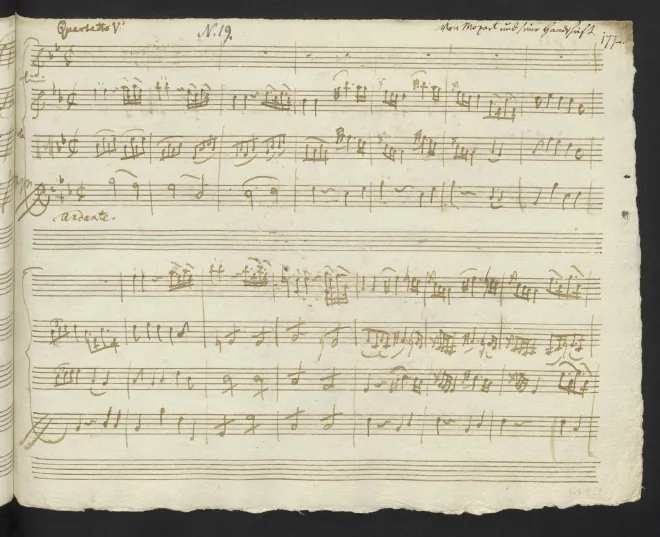 Quartetto V°
N. 19.
Von Mozart und seine Handschrift
177
Andante.